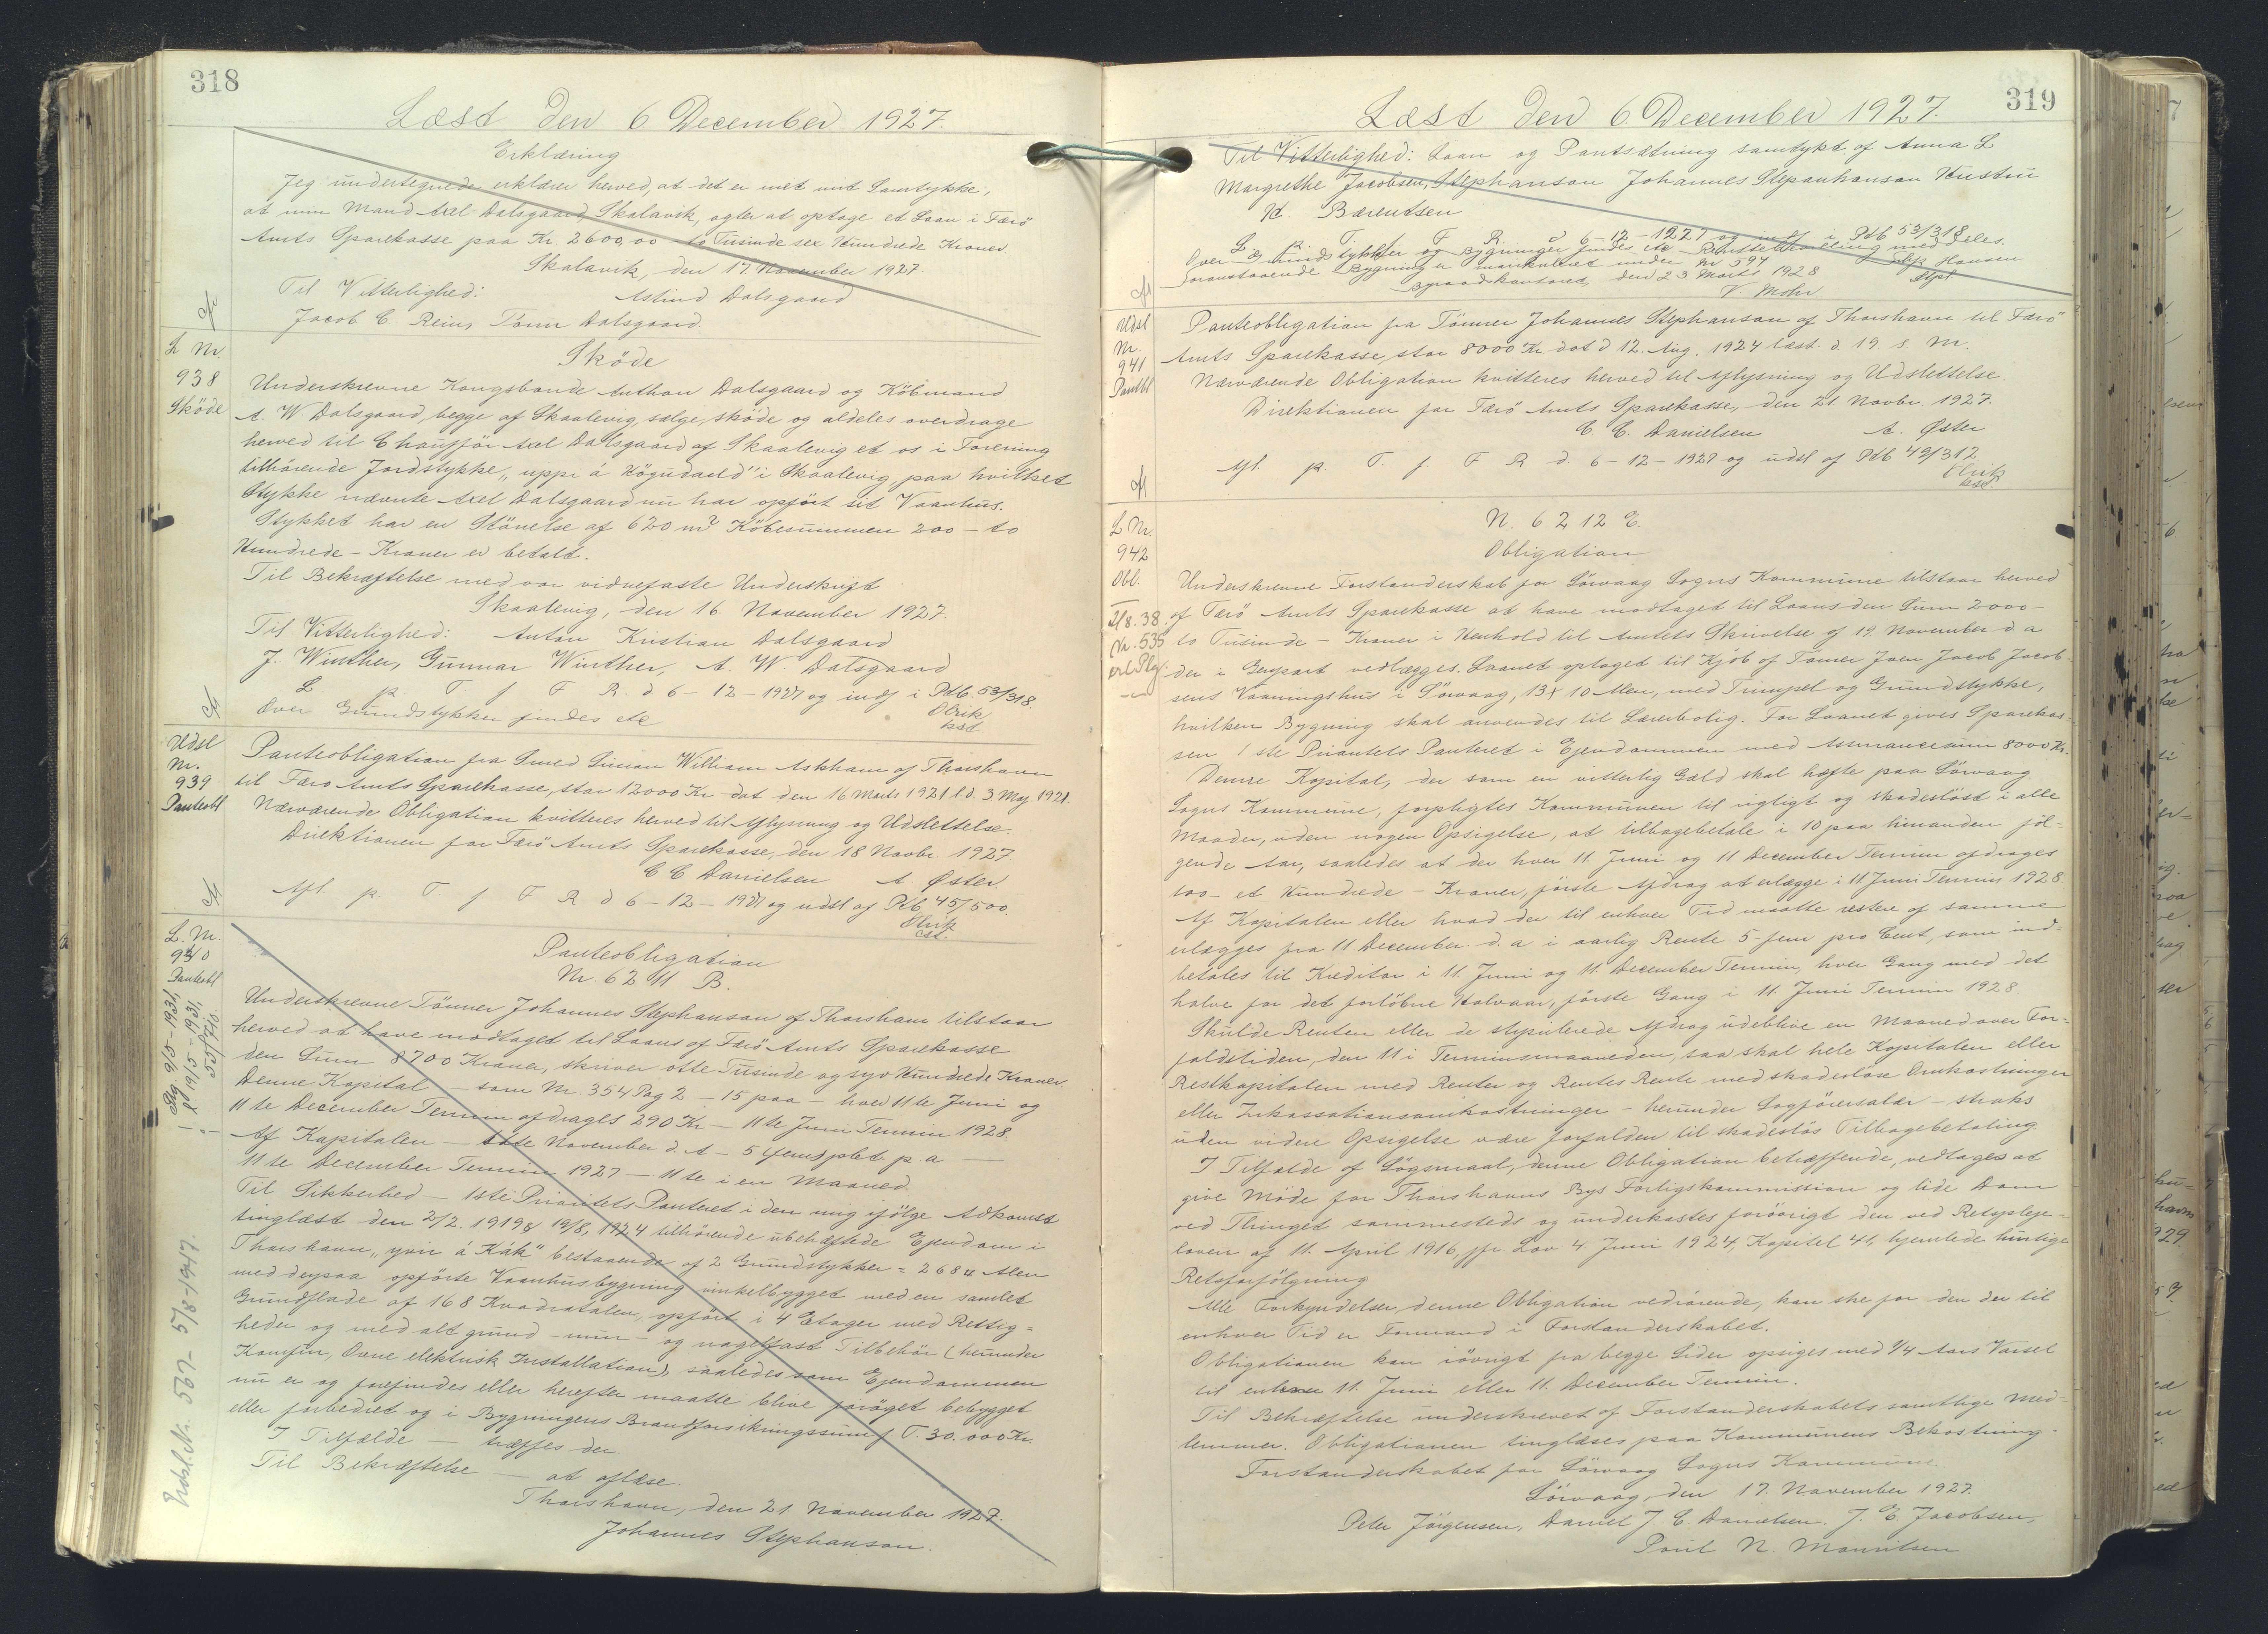 318
Læst den 6 December 1927.
Erklæring
Jeg undertegnede erklærer herved, at det er met mit Samtykke,
at min Mand Axel Dalsgaard, Skalavik, agter at optage et Laan i Færö
Amts Sparekasse paa Kr. 2600,00 to Tusinde sex Hundrede Kroner.
Skalavik, den 17 November 1927.
Til Vitterlighed: Astind Dalsgaard
Jacob C Rein, Dalsgaard.
L Nr.
938
Sköde
Sköde
Underskrevne Kongsbonde Anthon Dalsgaard og Köbmand
A. W. Dalsgaard, begge af Skaalevig, sælge, sköde og aldeles overdrage
herved til Chauffjör Axel Dalsgaard af Skaalevig et os i Forening
tilhörende Jordstykke, "uppi á Högudard" i Skaalevig, paa hvilket
Stykke nævnte Axel Dalsgaard nu har opfört sit Vaanhus.
Stykket har en Störrelse af 620 m² Köbesummen 200 - to
Hundrede - Kroner er betalt.
Til Bekræftelse med vor vidnefaste Underskrift
Skaalevig, den 16 November 1927.
Til Vitterlighed: Anton Kristian Dalsgaard
J. Winther, Gunnar Winther, A. W. Dalsgaard
L p T f F R. d 6-12-1927 og indf i Pdb. 53/318.
Over Grundstykker findes etc Olrik
kst
Udsl
Nr.
939
Panteobl
Panteobligation fra Smed Simon William Askham af Thorshavn
til Færö Amts Sparekasse, stor 12000 Kr dat den 16 Marts 1921 l.d. 3 Maj 1921.
Nærværende Obligation kvitteres herved til Aflysning og Udslettelse.
Direktionen for Færö Amts Sparekasse, den 18 Novbr. 1927.
C C Danielsen A. Øster.
Afl. p. T f F R d 6-12-1927 og udsl af Pb 45/500.
Olrik
cst.
L. Nr.
940
Panteobl
Slg. 9/5-1931,
l. 19/5-1931,
55/710
Udsl. Nr. 567- 5/8-1947.
Panteobligation
Nr. 6211 B.
Underskrevne Tömrer Johannes Stephanson af Thorshavn tilstaar
herved at have modtaget til Laans af Færö Amts Sparekasse
den Sum 8700 Kroner, skriver otte Tusinde og syv Hundrede Kroner.
Denne Kapital - som Nr. 354 Pag 2 - 15 paa - hver 11te Juni og
11te December Termin afdrages 290 Kr - 11te Juni Termin 1928.
Af Kapitalen - November d. A - 5 (fem) pCt. p. a -
11te December Termin 1927 - 11te i en Maaned.
Til Sikkerhed - 1ste Prioritets Panteret i den mig ifölge Adkomst
tinglæst den 2/2. 1919 & 19/8, 1924 tilhörende ubehæftede Ejendom i
Thorshavn, "yvir á Kák" bestaaende af 2 Grundstykker = 268 Alen
med derpaa opförte Vaanhusbygning vinkelbygget med en samlet
Grundflade af 168 Kvadratalen, opfört i 4 Etager med Rettig=
heder og med alt grund - mur - og nagelfast Tilbehör (herunder
Komfur, Ovne elektrisk Installation), saaledes som Ejendommen
nu er og forefindes eller herefter maatte blive foröget bebygget
eller forbedret og i Bygningens Brandforsikringssum f T. 30.000 Kr.
I Tilfælde - træffes der
Til Bekræftelse - at aflæse.
Thorshavn, den 21 November 1927.
Johannes Stephanson.
319
Læst den 6 December 1927.
Til Vitterlighed: Laan og Pantsætning samtykt af Anna L
Margrethe Jacobsen, Stephanson Johannes Stepanhanson Hustru
H. Bærentsen
L p T f F R d 6-12-1927 og indf i Pdb 53/318
Over Grundstykker og Bygninger findes etc Retsattest meddeles.
Foranstaaende Bygning er matrikuleret under Nr 597 Hansen
Byraadskontoret, den 23 Marts 1928 Stpl
V. Mohr
Udsl
Nr.
941
Pantbl
Panteobligation fra Tömrer Johannes Stephanson af Thorshavn til Færö
Amts Sparekasse, stor 8000 Kr dat d 12. Aug. 1924 læst d. 19 s. M.
Nærværende Obligation kvitteres herved til Aflysning og Udslettelse.
Direktionen for Færö Amts Sparekasse, den 21. Novbr 1927.
C. C. Danielsen A. Øster
Afl. p. T. f F R d. 6-12-1927 og udsl af Pdb 49/312
Olrik
kst.
L Nr.
942
Obl.
2/8.38.
Nr. 535
N. 6212 E.
Obligation
Underskrevne Forstanderskab for Sörvaag Sogns Kommune tilstaar herved
af Færö Amts Sparekasse at have modtaget til Laans den Sum 2000-
to Tusinde - Kroner i Henhold til Amtets Skrivelse af 19. November d a
der i Genpart vedlægges. Laanet optaget til Kjöb af Tömrer Joen Jacob Jacob-
sens Vaaningshus i Sörvaag, 13 x 10 Alen, med Trumpel og Grundstykke,
hvilken Bygning skal anvendes til Lærerbolig. For Laanet gives Sparekas-
sen 1ste Prioritets Panteret i Ejendommen med Assurancesum 8000 Kr.
Denne Kapital, der som en vitterlig Gæld skal hæfte paa Sörvaag
Sogns Kommune, forpligtes Kommunen til rigtigt og skadeslöst i alle
Maader, uden nogen Opsigelse, at tilbagebetale i 10 paa hinanden föl-
gende Aar, saaledes at der hver 11. Juni og 11 December Termin afdrages
100 - et Hundrede - Kroner, förste Afdrag at erlægge i 11 Juni Termin 1928.
Af Kapitalen eller hvad der til enhver Tid maatte restere af samme
erlægges fra 11. December d. a i aarlig Rente 5 - fem pro Cent, som ind-
betales til Kreditor i 11. Juni og 11. December Termin, hver Gang med det
halve for det forlöbne Halvaar, förste Gang i 11. Juni Termin 1928
Skulde Renten eller de stipulerede Afdrag udeblive en Maaned over For-
faldstiden, den 11 i Terminsmaaneden, saa skal hele Kapitalen eller
Restkapitalen med Renter og Rentes Rente med skadeslöse Omkostninger
eller Inkassationsomkostninger - herunder Sagförersalær - straks
uden videre Opsigelse være forfalden til skadeslös Tilbagebetaling.
I Tilfælde af Sögsmaal, denne Obligation betræffende, vedtages at
give Möde for Thorshavns Bys Forligskommission og lide Dom
ved Thinget sammesteds og underkastes foröVrigt den ved Retspleje-
loven af 11. April 1916, jfr. Lov 4 Juni 1924, Kapitel 41, hjemlede hurtige
Retsforfölgning
Alle Forkyndelser, denne Obligation vedrörende, kan ske for den der til
enhver Tid er Formand i Forstanderskabet.
Obligationen kan iövrigt fra begge Sider opsiges med 1/4 Aars Varsel
til enhver 11. Juni eller 11. December Termin.
Til Bekræftelse underskrevet af Forstanderskabets samtlige Med-
lemmer. Obligationen tinglæses paa Kommunens Bekostning.
Forstanderskabet for Sörvaag Sogns Kommune.
Sörvaag, den 17. November 1927.
Peter Jörgensen, Daniel J. C. Danielsen. J. E. Jacobsen,
Poul N. Mouritsen